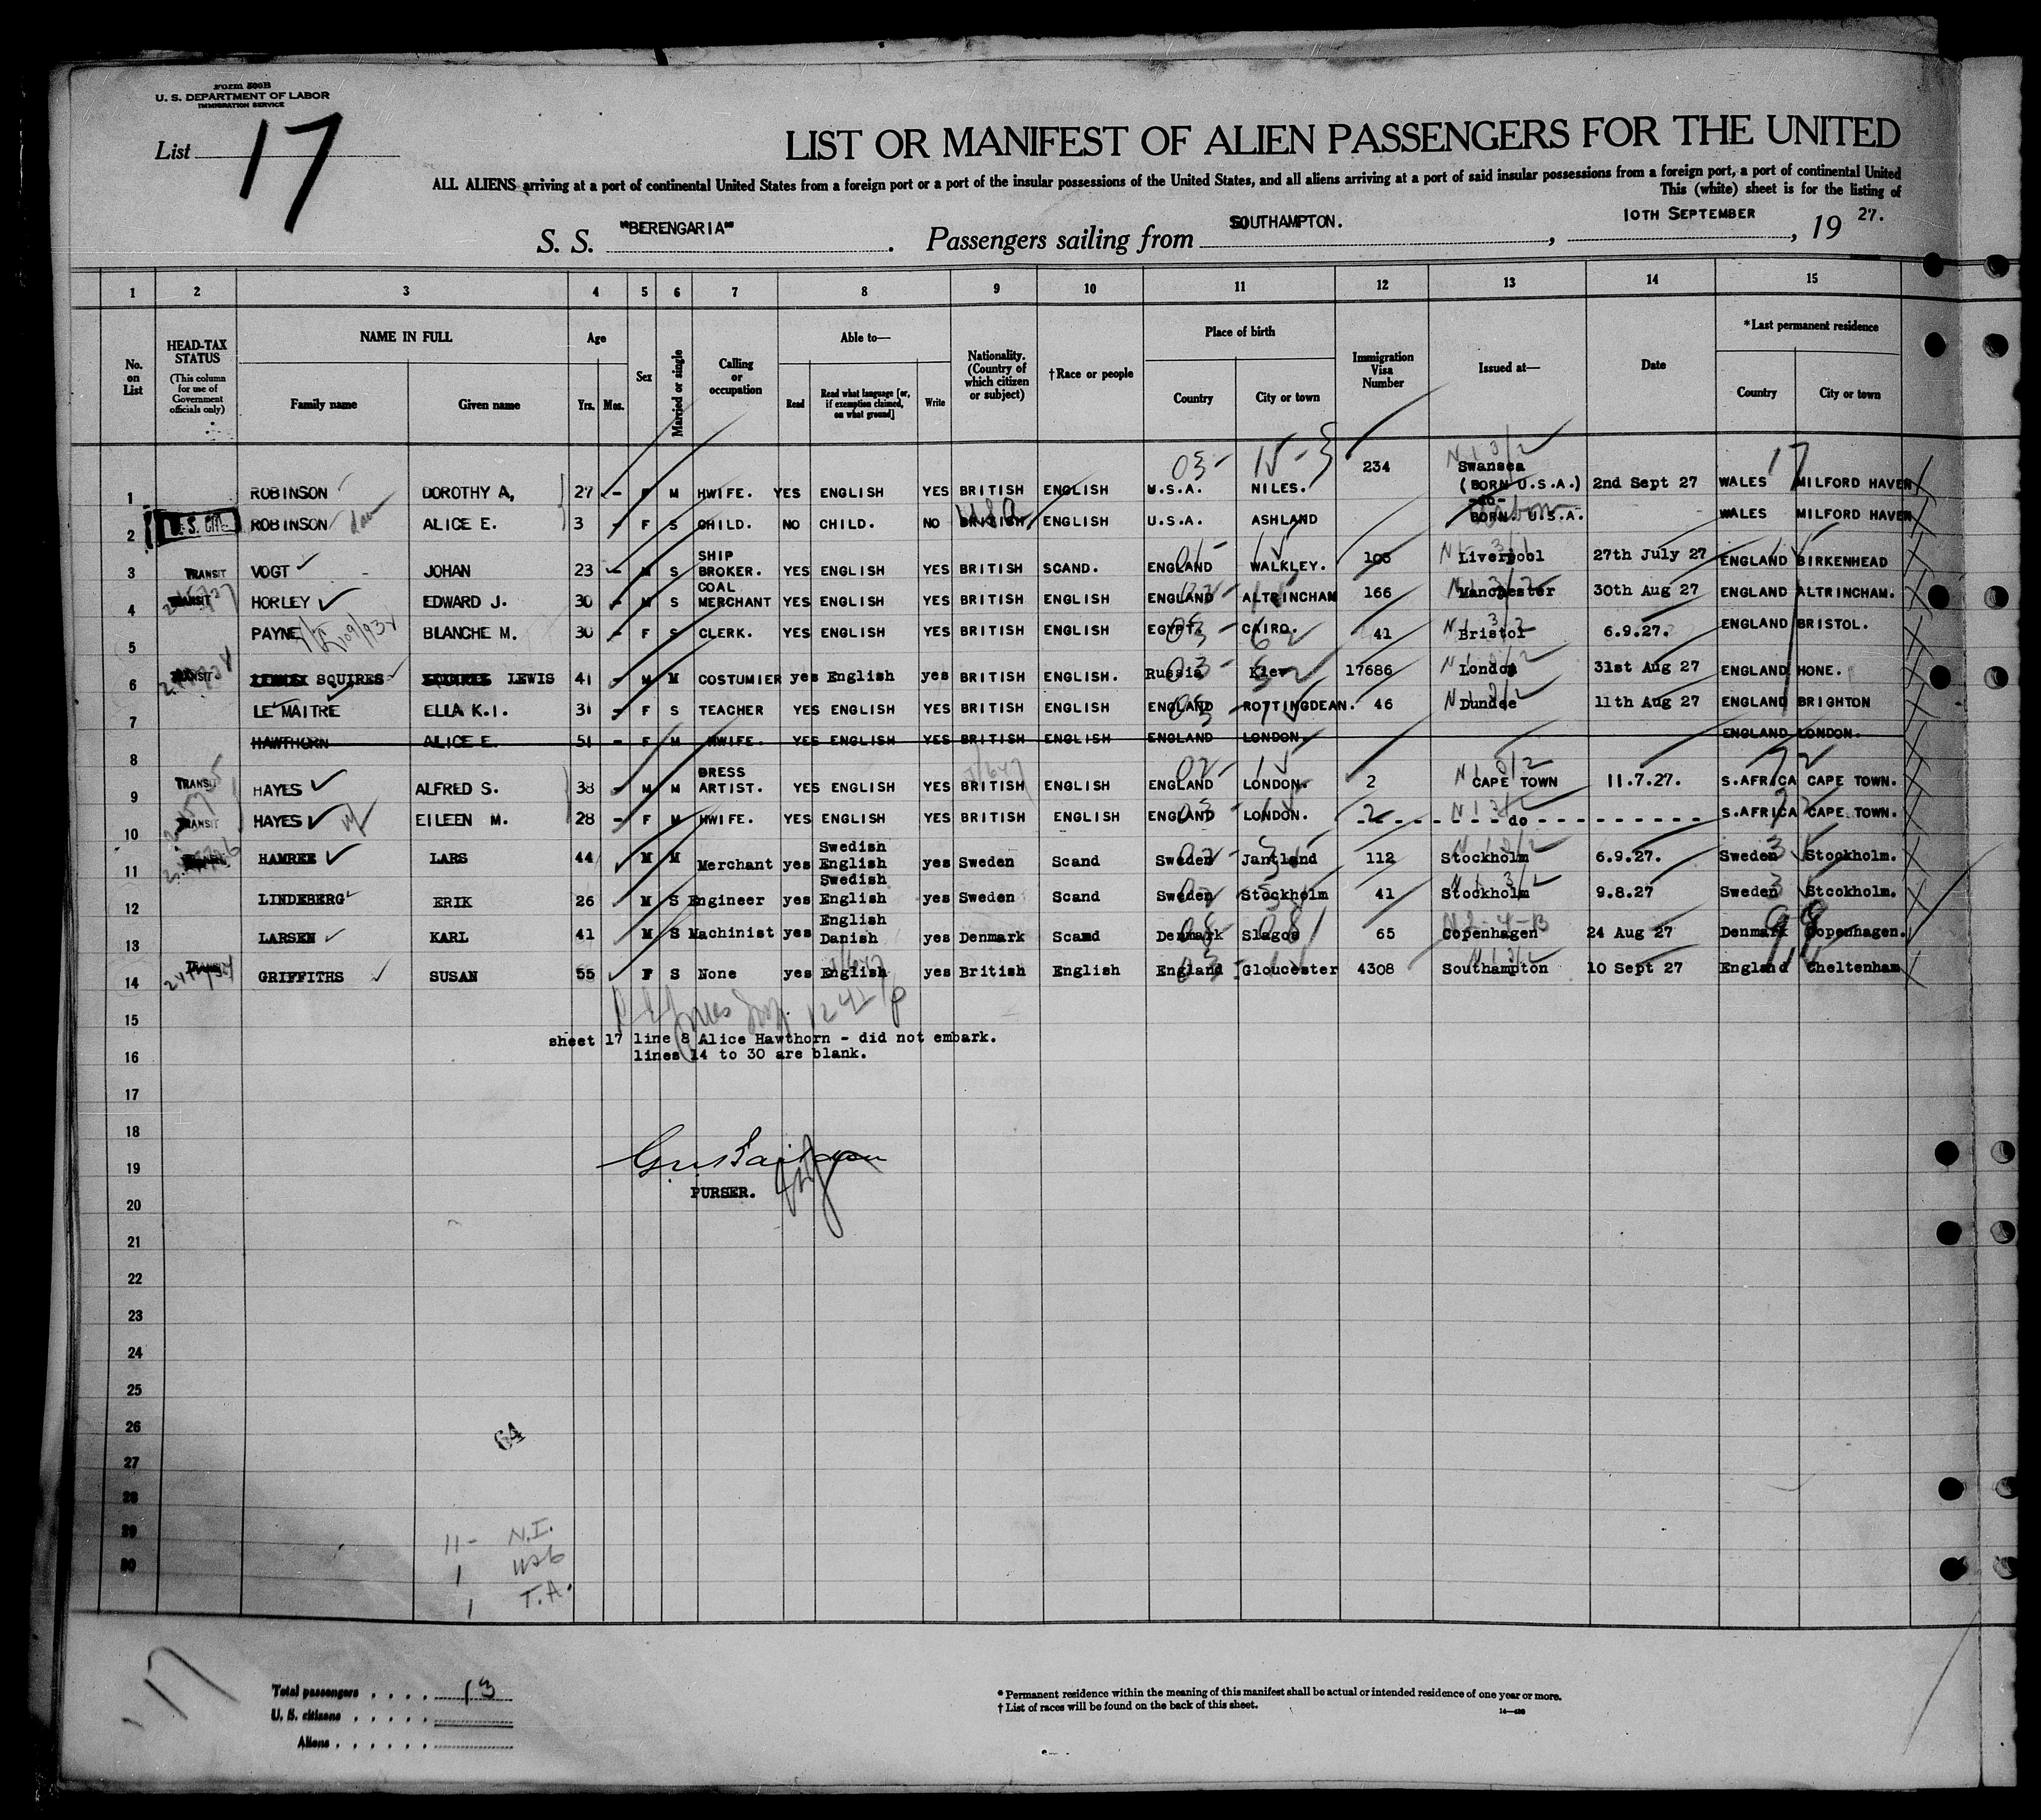 Form 500B
U. S. DEPARTMENT OF LABOR
IMMIGRATION SERVICE
List 17
LIST OR MANIFEST OF ALIEN PASSENGERS FOR THE UNITED
ALL ALIENS arriving at a port of continental United States from a foreign port or a port of the insular possessions of the United States, and all aliens arriving at a port of said insular possessions from a foreign port, a port of continental United
This (white) sheet is for the listing of
S. S. "BERENGARIA". Passengers sailing from SOUTHAMPTON., 10TH SEPTEMBER, 19 27.
1 2 3 4 5 6 7 8 9 10 11 12 13 14 15
No. on List
HEAD-TAX STATUS
(This column for use of Government officials only)
NAME IN FULL
Family name
Given name
Age
Yrs.
Mos.
Sex
Married or single
Calling or occupation
Able to—
Read
Read what language [or, if exemption claimed, on what ground]
Write
Nationality. (Country of which citizen or subject)
†Race or people
Place of birth
Country
City or town
Immigration Visa Number
Issued at—
Date
*Last permanent residence
Country
City or town
1 ROBINSON DOROTHY A, 27 - F M HWIFE. YES ENGLISH YES BRITISH ENGLISH U.S.A. NILES. 234 Swansea (BORN U.S.A.) 2nd Sept 27 WALES MILFORD HAVEN
2 U.S. CIT. ROBINSON ALICE E. 3 - F S CHILD. NO CHILD. NO BRITISH USA ENGLISH U.S.A. ASHLAND -do- BORN. U.S.A. WALES MILFORD HAVEN
3 TRANSIT VOGT JOHAN 23 - M S SHIP BROKER. YES ENGLISH YES BRITISH SCAND. ENGLAND WALKLEY. 105 Liverpool 27th July 27 ENGLAND BIRKENHEAD
4 TRANSIT HORLEY EDWARD J. 30 - M S COAL MERCHANT YES ENGLISH YES BRITISH ENGLISH ENGLAND ALTRINCHAM 166 Manchester 30th Aug 27 ENGLAND ALTRINCHAM.
5 PAYNE BLANCHE M. 30 - F S CLERK. YES ENGLISH YES BRITISH ENGLISH EGYPT. CAIRO. 41 Bristol 6.9.27. ENGLAND BRISTOL.
6 TRANSIT SQUIRES LEWIS 41 - M M COSTUMIER yes English yes BRITISH ENGLISH. Russia Kiev 17686 London 31st Aug 27 ENGLAND HONE.
7 LE MAITRE ELLA K.I. 31 F S TEACHER YES ENGLISH YES BRITISH ENGLISH ENGLAND ROTTINGDEAN. 46 Dundee 11th Aug 27 ENGLAND BRIGHTON
8 HAWTHORN ALICE E. 51 - F M HWIFE. YES ENGLISH YES BRITISH ENGLISH ENGLAND LONDON. ENGLAND LONDON.
9 TRANSIT HAYES ALFRED S. 38 M M DRESS ARTIST. YES ENGLISH YES BRITISH ENGLISH ENGLAND LONDON. 2 CAPE TOWN 11.7.27. S.AFRICA CAPE TOWN.
10 TRANSIT HAYES EILEEN M. 28 - F M HWIFE. YES ENGLISH YES BRITISH ENGLISH ENGLAND LONDON. 2 - - - do - - - S.AFRICA CAPE TOWN.
11 HAMREE LARS 44 M M Merchant yes Swedish English yes Sweden Scand Sweden Jantland 112 Stockholm 6.9.27. Sweden Stockholm.
12 LINDEBERG ERIK 26 M S Engineer yes Swedish English yes Sweden Scand Sweden Stockholm 41 Stockholm 9.8.27 Sweden Stockholm.
13 LARSEN KARL 41 M S Machinist yes English Danish yes Denmark Scand Denmark Slagos 65 Copenhagen 24 Aug 27 Denmark Copenhagen.
14 TRANSIT GRIFFITHS SUSAN 55 F S None yes English yes British English England Gloucester 4308 Southampton 10 Sept 27 England Cheltenham
15
sheet 17 line 8 Alice Hawthorn - did not embark.
16
lines 14 to 30 are blank.
17
18
19
PURSER.
20
21
22
23
24
25
26
64
27
28
29
11- N.I.
30
1
1 T.A.
17
Total passengers . . . . 13
U. S. citizens . . . . .
Aliens . . . . . .
* Permanent residence within the meaning of this manifest shall be actual or intended residence of one year or more.
† List of races will be found on the back of this sheet.